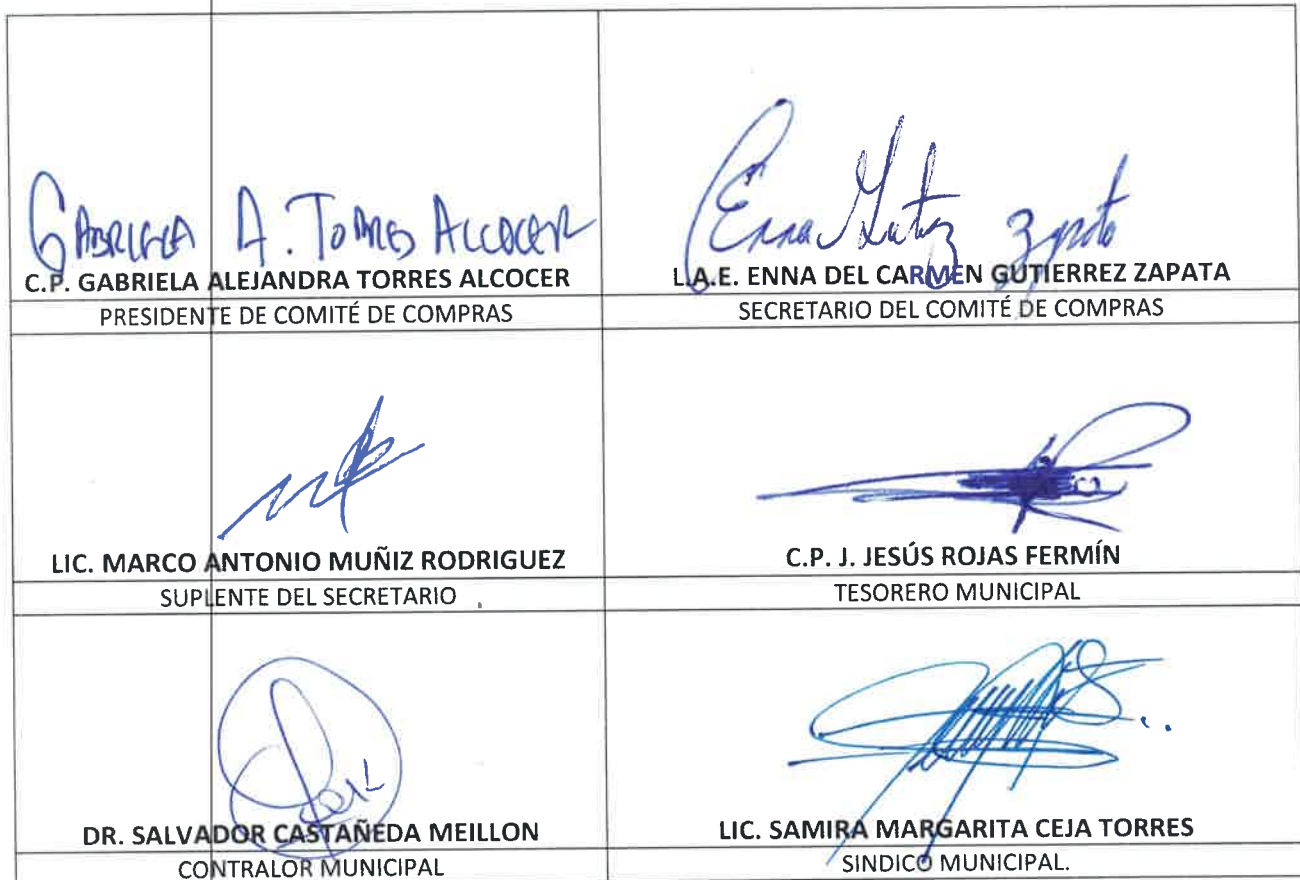 GABRIELA A. TORRES ALCOCER
Enna Gutz Zapata
C.P. GABRIELA ALEJANDRA TORRES ALCOCER
L.A.E. ENNA DEL CARMEN GUTIERREZ ZAPATA
PRESIDENTE DE COMITÉ DE COMPRAS
SECRETARIO DEL COMITÉ DE COMPRAS
LIC. MARCO ANTONIO MUÑIZ RODRIGUEZ
C.P. J. JESÚS ROJAS FERMÍN
SUPLENTE DEL SECRETARIO
TESORERO MUNICIPAL
DR. SALVADOR CASTAÑEDA MEILLON
LIC. SAMIRA MARGARITA CEJA TORRES
CONTRALOR MUNICIPAL
SINDICO MUNICIPAL.